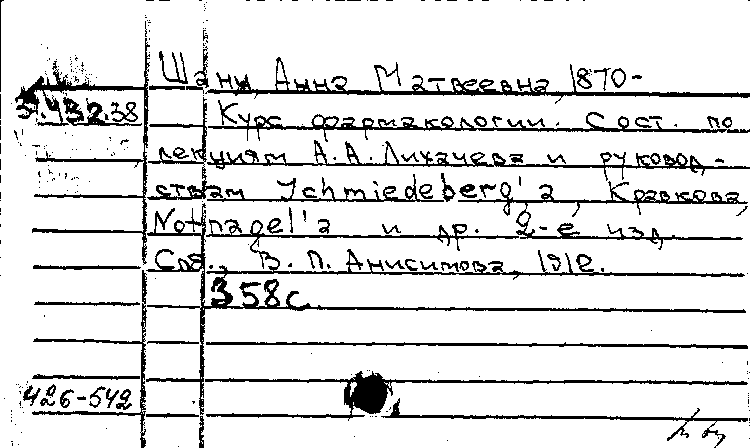 Шанц, Анна Матвеевна, 1870-
37.432.38
Курс фармакологии. Сост. по
лекциям А.А.Лихачева и руковод-
ствам Schmiedeberg'а, Кравкова,
Notnagel'а и др. 2-е изд.
Спб., В. П. Анисимова, 1912.
358с.
426-542